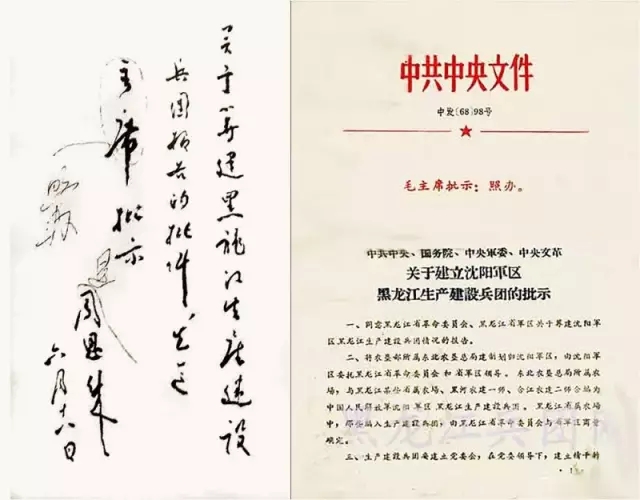 关于筹建黑龙江生产建设
兵团报告的批件,先送
主席批示
照办
周恩来
六月十八日
中共中央文件
中发〔68〕98号
毛主席批示：照办。
中共中央、国务院、中央军委、中央文革
关于建立沈阳军区
黑龙江生产建設兵团的批示
一、同意黑龙江省革命委员会、黑龙江省军区关于筹建沈阳军
区黑龙江生产建設兵团情况的报告。
二、将农垦部所属东北农垦总局建制划归沈阳军区，由沈阳军
区委托黑龙江省革命委员会和省军区领导。东北农垦总局所属农
场，与黑龙江某些省属农场、黑河农建一师、合江农建二师合编为
中国人民解放军沈阳军区黑龙江生产建設兵团。黑龙江省属农场
中，那些编入生产建設兵团，由黑龙江省革命委员会与省军区商量
确定。
三、生产建設兵团要建立党委会，在党委领导下，建立精干的
· 1 ·
黑龙江兵团